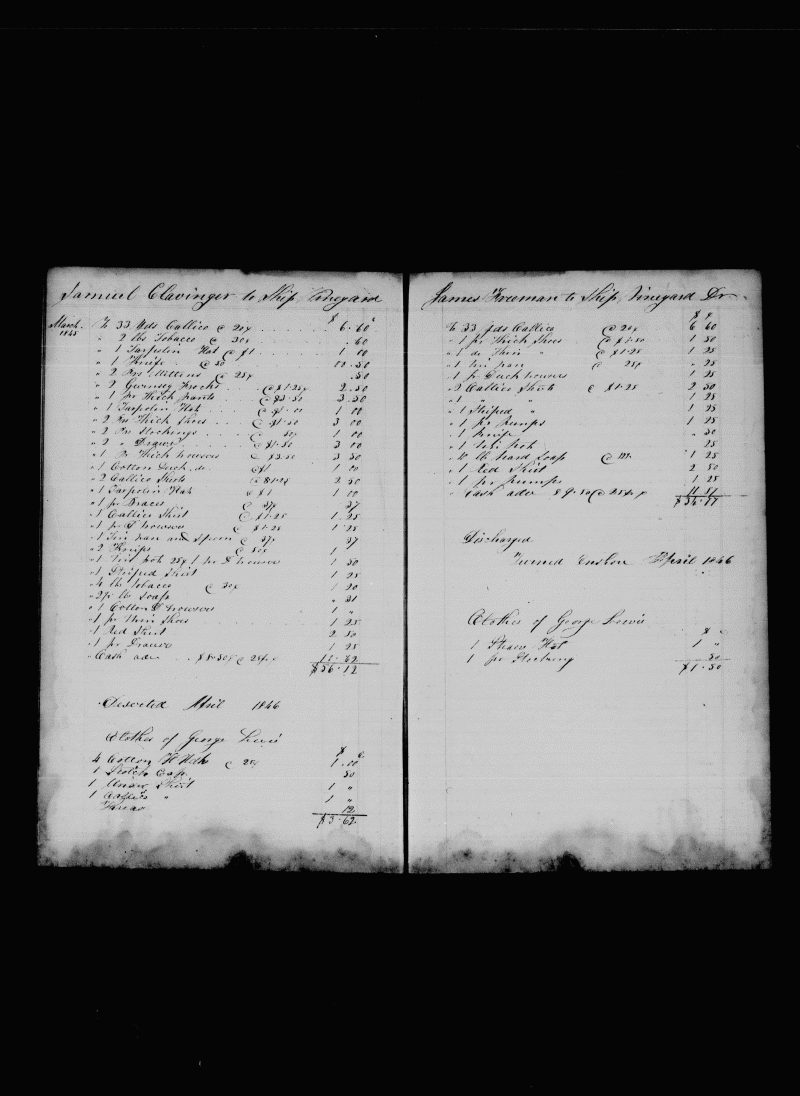 Samuel Clavinger to Ship Vineyard
$ c
March 1845 To 33 Yds Callico @ 20¢ 6.60
" 2 lbs Tobacco @ 30¢ .60
" 1 Tarpolin Hat @ $1 1 00
" 1 Knife @ 50 .50
" 2 Prs Mittens @ 25¢ .50
" 2 Gurnsey Frocks @ $1.25¢ 2.50
" 1 pr Thick pants @ $3.50 3.50
" 1 Tarpolin Hat @ $1.00 1 00
" 2 Prs Thick Shoes @ $1.50 3 00
" 2 Prs Stockings @ 50¢ 1 00
" 2 " Drawers 3 00
" 1 Pr Thick trowsers @ $3.50 3 50
" 1 Cotton Duck do @ $1 1 00
" 2 Callico Shirts @ $1.25 2 50
" 1 Tarpolin Hat @ $1 1 00
" 1 pr Braces @ 37¢ 37
" 1 Callico Shirt @ $1.25 1.25
" 1 pr D trowsers @ $1.25 1.25
" 1 Tin pan and Spoon @ 37¢ 37
" 2 Knifes @ 50¢ 1 "
" 1 tin pot 25¢ 1 pr D trowsers 1 50
" 1 Striped Shirt 1 25
" 4 lbs tobacco @ 30¢ 1 20
" lb Soap " 31
" 1 Cotton D trowsers 1 "
" 1 pr thin Shoes 1 25
" 1 Red Shirt 2 50
" 1 pr Drawers 1 25
" Cash adv @ 25% 10.62
$56.12
Deserted April 1846
Clothes of George Lewis
$ c
4 Cotton H Hdks @ 25¢ 1.00
1 Scotch Cap 50
1 Shirt 1 "
1 Callico " 1 "
Thread 12
$3.62
James Freeman to Ship Vineyard Dr
$ c
To 33 yds Callico @ 20¢ 6 60
" 1 pr Thick Shoes @ $1.50 1 50
" 1 do Thin " @ $1.25 1 25
" 1 tin pan @ 25¢ " 25
" 1 pr Duck trowsers 1 25
" 2 Callico Shirts @ $1.25 2 50
" 1 " " 1 25
" 1 Striped " 1 25
" 1 pr pumps 1 25
" 1 Knife " 50
" 1 tin pot 25
" lb hard Soap 1 25
" 1 Red Shirt 2 50
" 1 pr pumps 1 25
" Cash adv $9.50 @ 25%
Discharged
Turned Ensbon April 1846
Clothes of George Lewis
$ c
1 Straw Hat 1 "
1 pr Stocking 50
$1.50